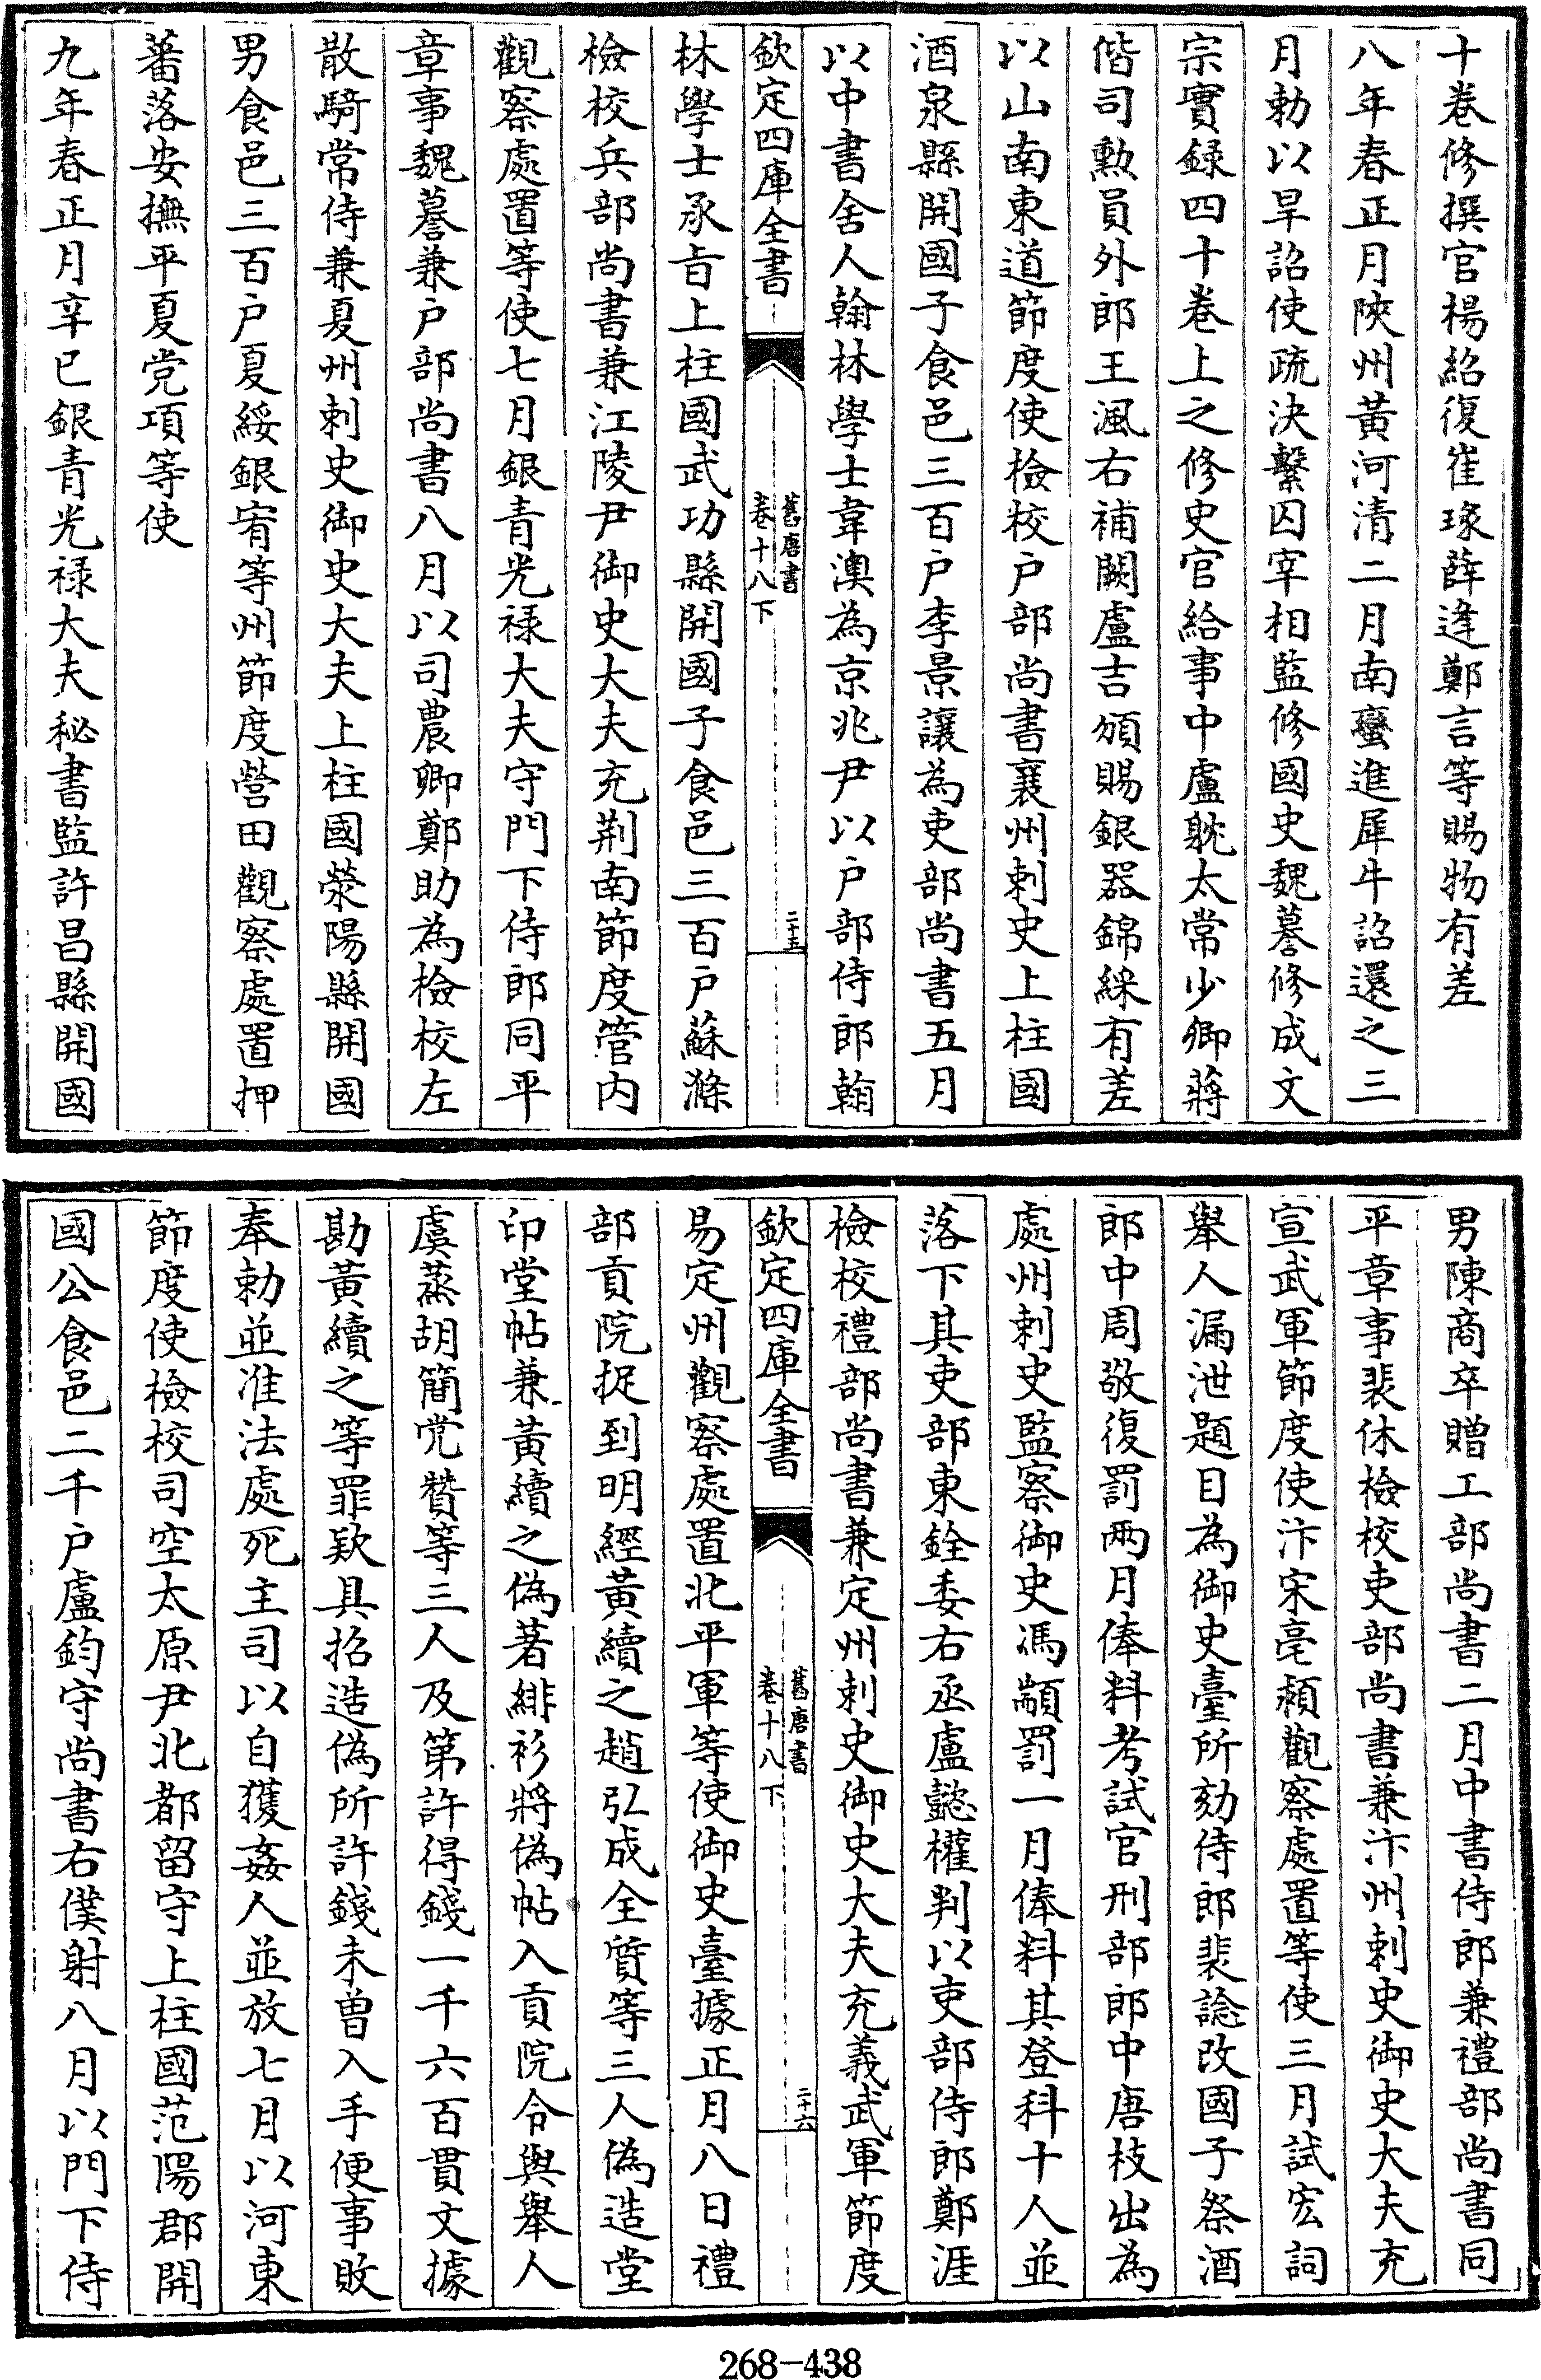 十卷修撰官楊紹復崔瑑薛逢鄭言等賜物有差
八年春正月陜州黃河清二月南蠻進犀牛詔還之三
月勅以旱詔使疏決繫囚宰相監修國史魏謩修成文
宗實録四十卷上之修史官給事中盧躭太常少卿蔣
偕司勲員外郎王渢右補闕盧吉頒賜銀器錦綵有差
以山南東道節度使檢校户部尚書襄州刺史上柱國
酒泉縣開國子食邑三百户李景讓為吏部尚書五月
以中書舍人翰林學士韋澳為京兆尹以户部侍郎翰
欽定四庫全書
舊唐書
卷十八下
二十五
林學士承旨上柱國武功縣開國子食邑三百户蘇滌
檢校兵部尚書兼江陵尹御史大夫充荆南節度管内
觀察處置等使七月銀青光禄大夫守門下侍郎同平
章事魏謩兼户部尚書八月以司農卿鄭助為檢校左
散騎常侍兼夏州刺史御史大夫上柱國滎陽縣開國
男食邑三百户夏綏銀宥等州節度營田觀察處置押
蕃落安撫平夏党項等使
九年春正月辛巳銀青光禄大夫秘書監許昌縣開國
男陳商卒贈工部尚書二月中書侍郎兼禮部尚書同
平章事裴休檢校吏部尚書兼汴州刺史御史大夫充
宣武軍節度使汴宋亳潁觀察處置等使三月試宏詞
舉人漏泄題目為御史臺所劾侍郎裴諗改國子祭酒
郎中周敬復罰兩月俸料考試官刑部郎中唐枝出為
處州刺史監察御史馮顓罰一月俸料其登科十人並
落下其吏部東銓委右丞盧懿權判以吏部侍郎鄭涯
檢校禮部尚書兼定州刺史御史大夫充義武軍節度
欽定四庫全書
舊唐書
卷十八下
二十六
易定州觀察處置北平軍等使御史臺據正月八日禮
部貢院捉到明經黃續之趙弘成全質等三人偽造堂
印堂帖兼黃續之偽著緋衫將偽帖入貢院令與舉人
虞蒸胡簡党贊等三人及第許得錢一千六百貫文據
勘黃續之等罪欵具招造偽所許錢未曾入手便事敗
奉勅並准法處死主司以自獲姦人並放七月以河東
節度使檢校司空太原尹北都留守上柱國范陽郡開
國公食邑二千户盧鈞守尚書右僕射八月以門下侍
268-438